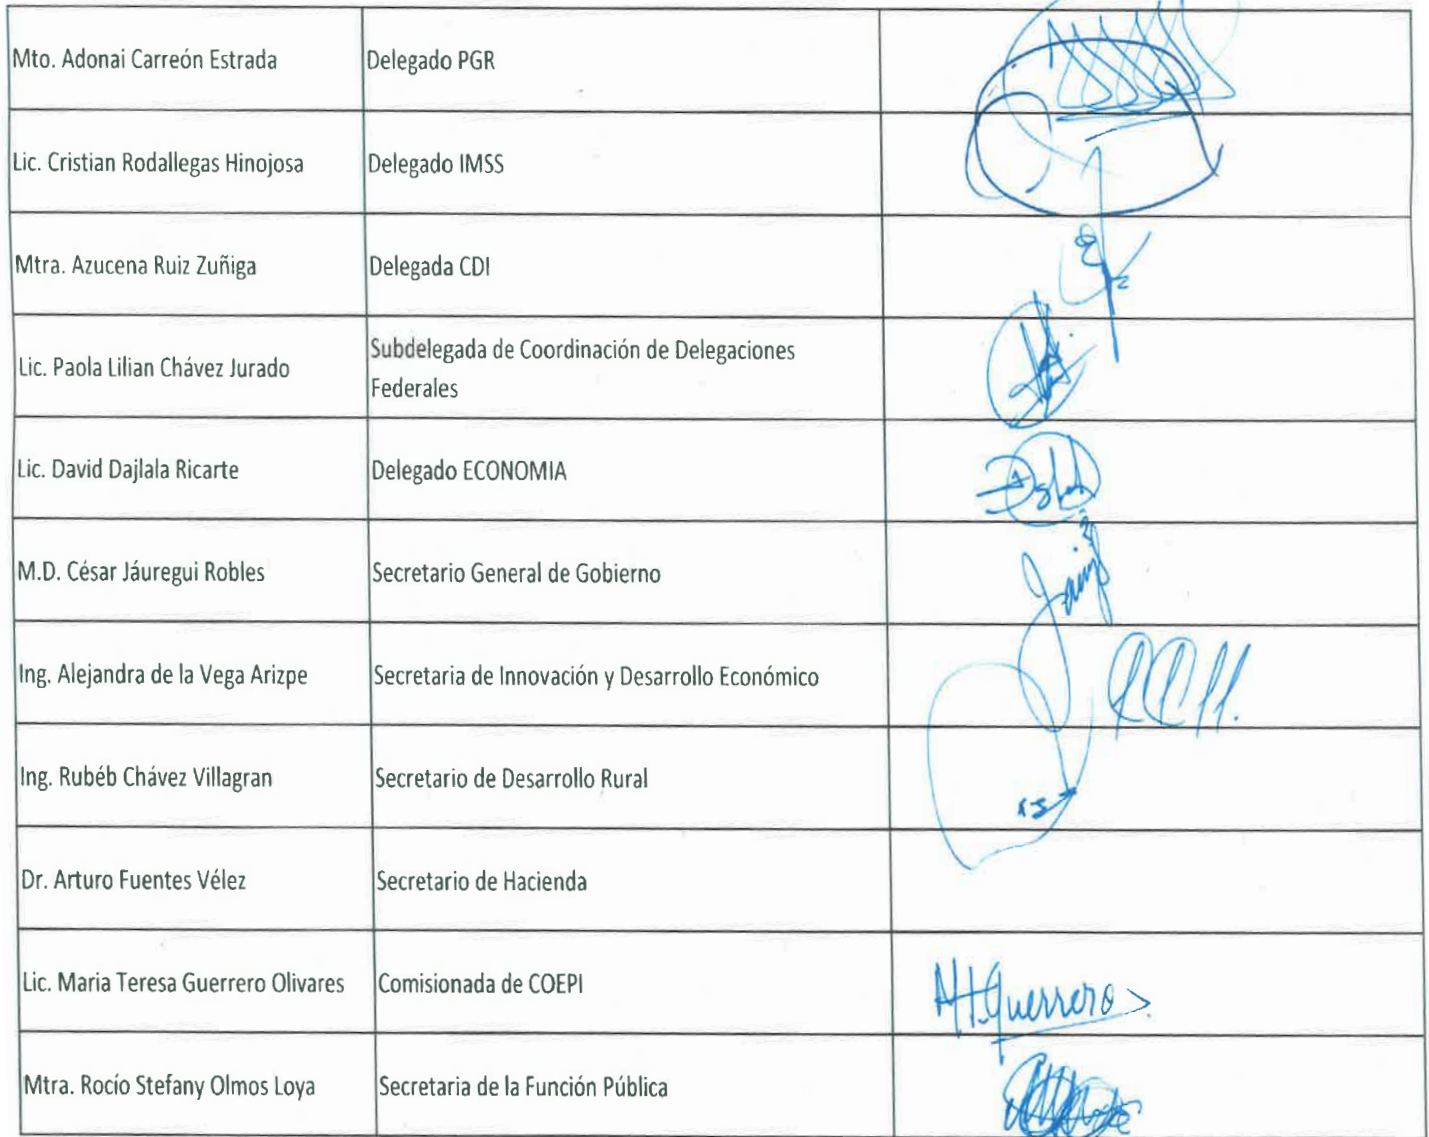 Mto. Adonai Carreón Estrada Delegado PGR
Lic. Cristian Rodallegas Hinojosa Delegado IMSS
Mtra. Azucena Ruiz Zuñiga Delegada CDI
Lic. Paola Lilian Chávez Jurado Subdelegada de Coordinación de Delegaciones
Federales
Lic. David Dajlala Ricarte Delegado ECONOMIA
M.D. César Jáuregui Robles Secretario General de Gobierno
Ing. Alejandra de la Vega Arizpe Secretaria de Innovación y Desarrollo Económico
Ing. Rubéb Chávez Villagran Secretario de Desarrollo Rural
Dr. Arturo Fuentes Vélez Secretario de Hacienda
Lic. Maria Teresa Guerrero Olivares Comisionada de COEPI M.T.Guerrero
Mtra. Rocío Stefany Olmos Loya Secretaria de la Función Pública